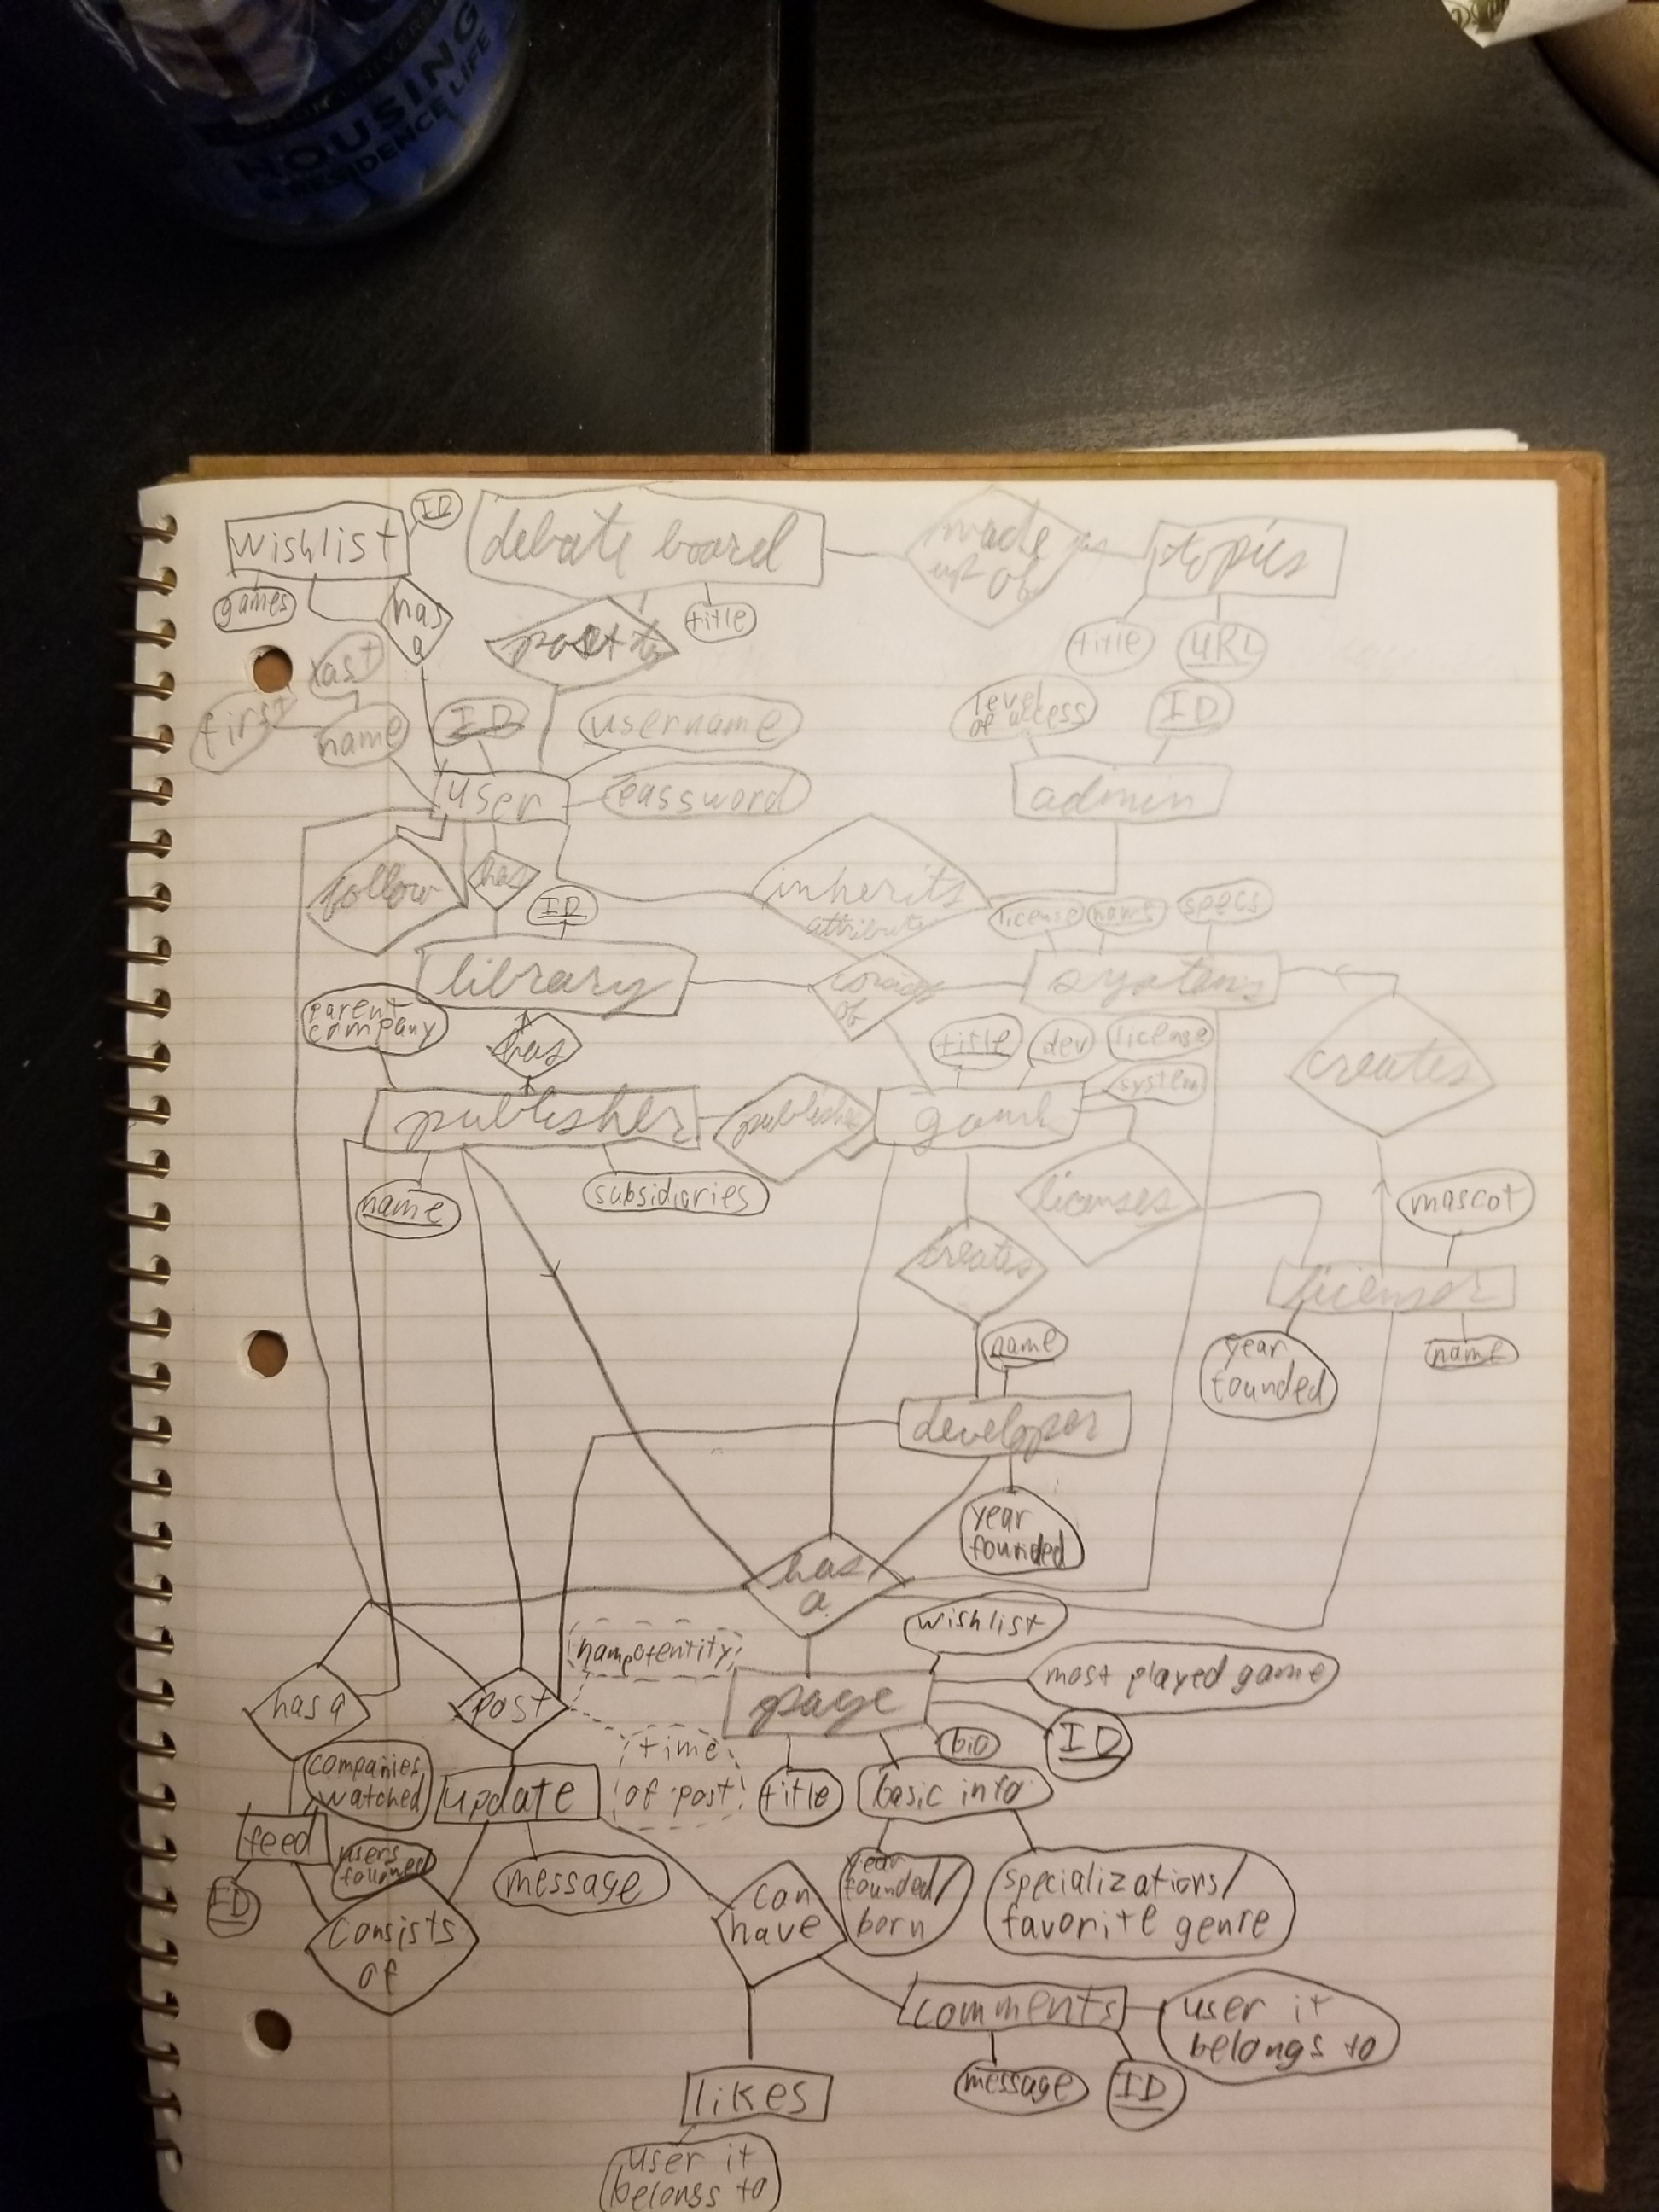 HOUSING
& RESIDENCE LIFE
wishlist
ID
debate board
made
up of
topics
games
has
a
post to
title
title
URL
last
first
name
ID
username
level
of access
ID
user
password
admin
follow
has
ID
inherits
attributes
license
name
specs
library
consists
of
systems
parent
company
has
title
dev
license
system
creates
publisher
publishes
game
name
subsidiaries
licenses
mascot
creates
licensor
name
year
founded
name
developer
year
founded
has
a
wishlist
name of entity
most played game
has a
post
page
bio
ID
time
of post
companies
watched
update
title
basic info
feed
users
followed
message
ID
can
have
year
founded/
born
specializations/
favorite genre
consists
of
comments
user it
belongs to
message
ID
likes
user it
belongs to